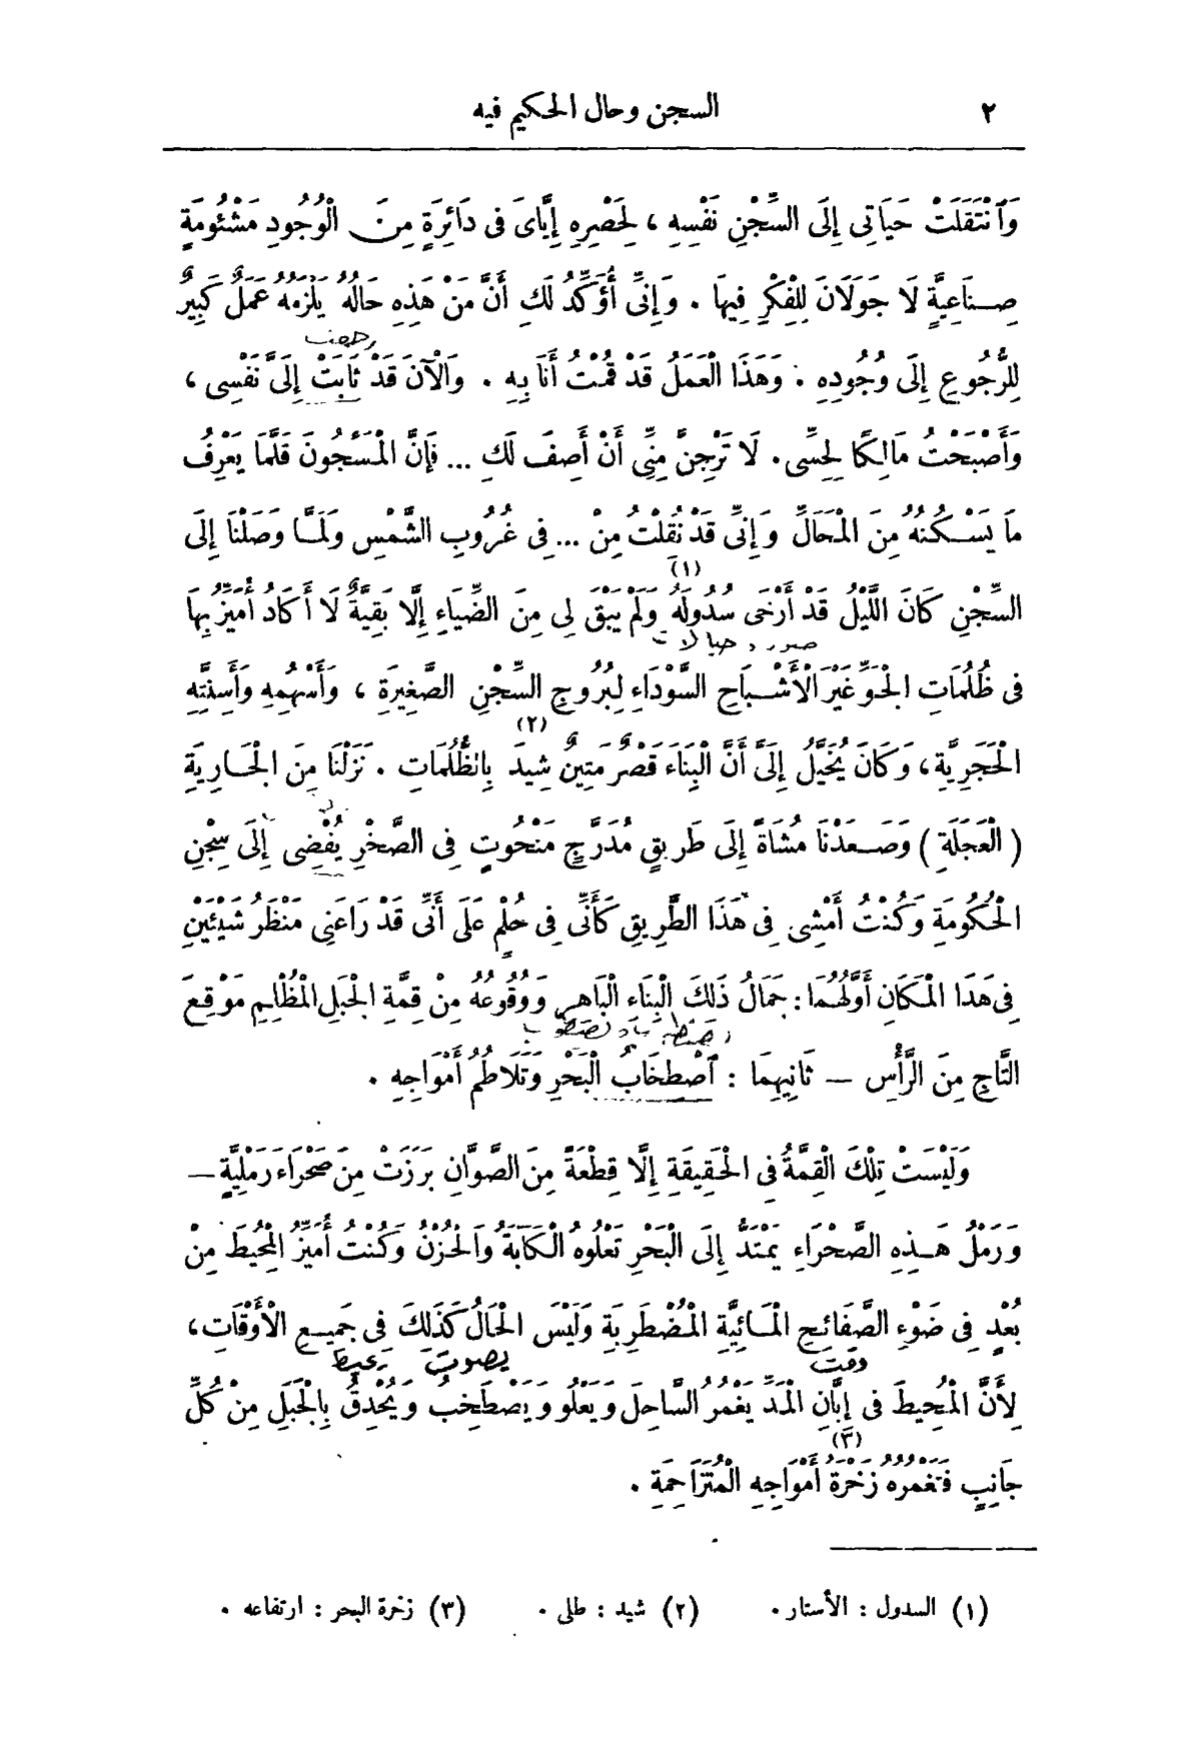 ٢ السجن وحال الحكيم فيه
وَٱنْتَقَلَتْ حَيَاتِى إِلَى السِّجْنِ نَفْسِهِ ، لِحَصْرِهِ إِيَّاىَ فى دَائِرَةٍ مِنَ الْوُجُودِ مَشْئُومَةٍ
صِنَاعِيَّةٍ لَا جَوَلَانَ لِلْفِكْرِ فِيهَا . وَإِنِّى أُؤَكِّدُ لَكِ أَنَّ مَنْ هَذِهِ حَالُهُ يَلْزَمُهُ عَمَلٌ كَبِيرٌ
لِلرُّجُوعِ إِلَى وُجُودِهِ : وَهَذَا الْعَمَلُ قَدْ قُمْتُ أَنَا بِهِ . وَالْآنَ قَدْ ثَابَتْ إِلَىَّ نَفْسِى ،
وَأَصْبَحْتُ مَالِكًا لِحِسِّى. لَا تَرْجِنَّ مِنِّى أَنْ أَصِفَ لَكِ ... فَإِنَّ الْمَسْجُونَ قَلَّمَا يَعْرِفُ
مَا يَسْكُنُهُ مِنَ الْمَحَالِّ وَإِنِّى قَدْ نُقِلْتُ مِنْ ... فى غُرُوبِ الشَّمْسِ وَلَمَّا وَصَلْنَا إِلَى
السِّجْنِ كَانَ اللَّيْلُ قَدْ أَرْخَى سُدُولَهُ (١) وَلَمْ يَبْقَ لِى مِنَ الضِّيَاءِ إِلَّا بَقِيَّةٌ لَا أَكَادُ أُمَيِّزُ بِهَا
فى ظُلُمَاتِ الْجَوِّ غَيْرَ الْأَشْبَاحِ السَّوْدَاءِ لِبُرُوجِ السِّجْنِ الصَّغِيرَةِ ، وَأَسْهُمِهِ وَأَسِنَّتِهِ
الْحَجَرِيَّةِ ، وَكَانَ يُخَيَّلُ إِلَىَّ أَنَّ الْبِنَاءَ قَصْرٌ مَتِينٌ شِيدَ (٢) بِالظُّلُمَاتِ . نَزَلْنَا مِنَ الْجَارِيَةِ
( الْعَجَلَةِ ) وَصَعَدْنَا مُشَاةً إِلَى طَرِيقٍ مُدَرَّجٍ مَنْحُوتٍ فِى الصَّخْرِ يُفْضِى إِلَى سِجْنِ
الْحُكُومَةِ وَكُنْتُ أَمْشِى فِى هَذَا الطَّرِيقِ كَأَنِّى فِى حُلْمٍ عَلَى أَنِّى قَدْ رَاعَنِى مَنْظَرُ شَيْئَيْنِ
فِى هَذَا الْمَكَانِ أَوَّلُهُمَا : جَمَالُ ذَلِكَ الْبِنَاءِ الْبَاهِرِ وَوُقُوعُهُ مِنْ قِمَّةِ الْجَبَلِ الْمُظْلِمِ مَوْقِعَ
التَّاجِ مِنَ الرَّأْسِ — ثَانِيهِمَا : ٱصْطِخَابُ الْبَحْرِ وَتَلَاطُمُ أَمْوَاجِهِ .
وَلَيْسَتْ تِلْكَ الْقِمَّةُ فِى الْحَقِيقَةِ إِلَّا قِطْعَةً مِنَ الصَّوَّانِ بَرَزَتْ مِنَ صَحْرَاءَ رَمْلِيَّةٍ —
وَرَمْلُ هَذِهِ الصَّحْرَاءِ يَمْتَدُّ إِلَى الْبَحْرِ تَعْلُوهُ الْكَآبَةُ وَالْحُزْنُ وَكُنْتُ أُمَيِّزُ الْمُحِيطَ مِنْ
بُعْدٍ فِى ضَوْءِ الصَّفَائِحِ الْمَائِيَّةِ الْمُضْطَرِبَةِ وَلَيْسَ الْحَالُ كَذَلِكَ فى جَمِيعِ الْأَوْقَاتِ ،
وقت يصوت
لِأَنَّ الْمُحِيطَ فى إِبَّانِ الْمَدِّ يَغْمُرُ السَّاحِلَ وَيَعْلُو وَيَصْطَخِبُ وَيُحْدِقُ بِالْجَبَلِ مِنْ كُلِّ
جَانِبٍ فَتَغْمُرُهُ زَخْرَةُ (٣) أَمْوَاجِهِ الْمُتَزَاحِمَةِ .
(١) السدول : الأستار . (٢) شيد : طلى . (٣) زخرة البحر : ارتفاعه .